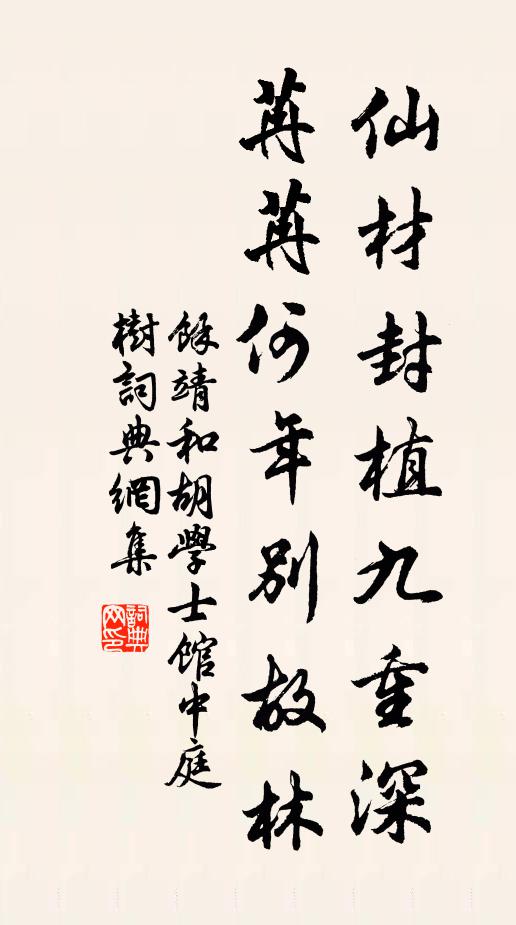 仙材封植九重深
苒苒何年別故林
餘靖和胡學士館中庭
樹詞典網集
詞典網印